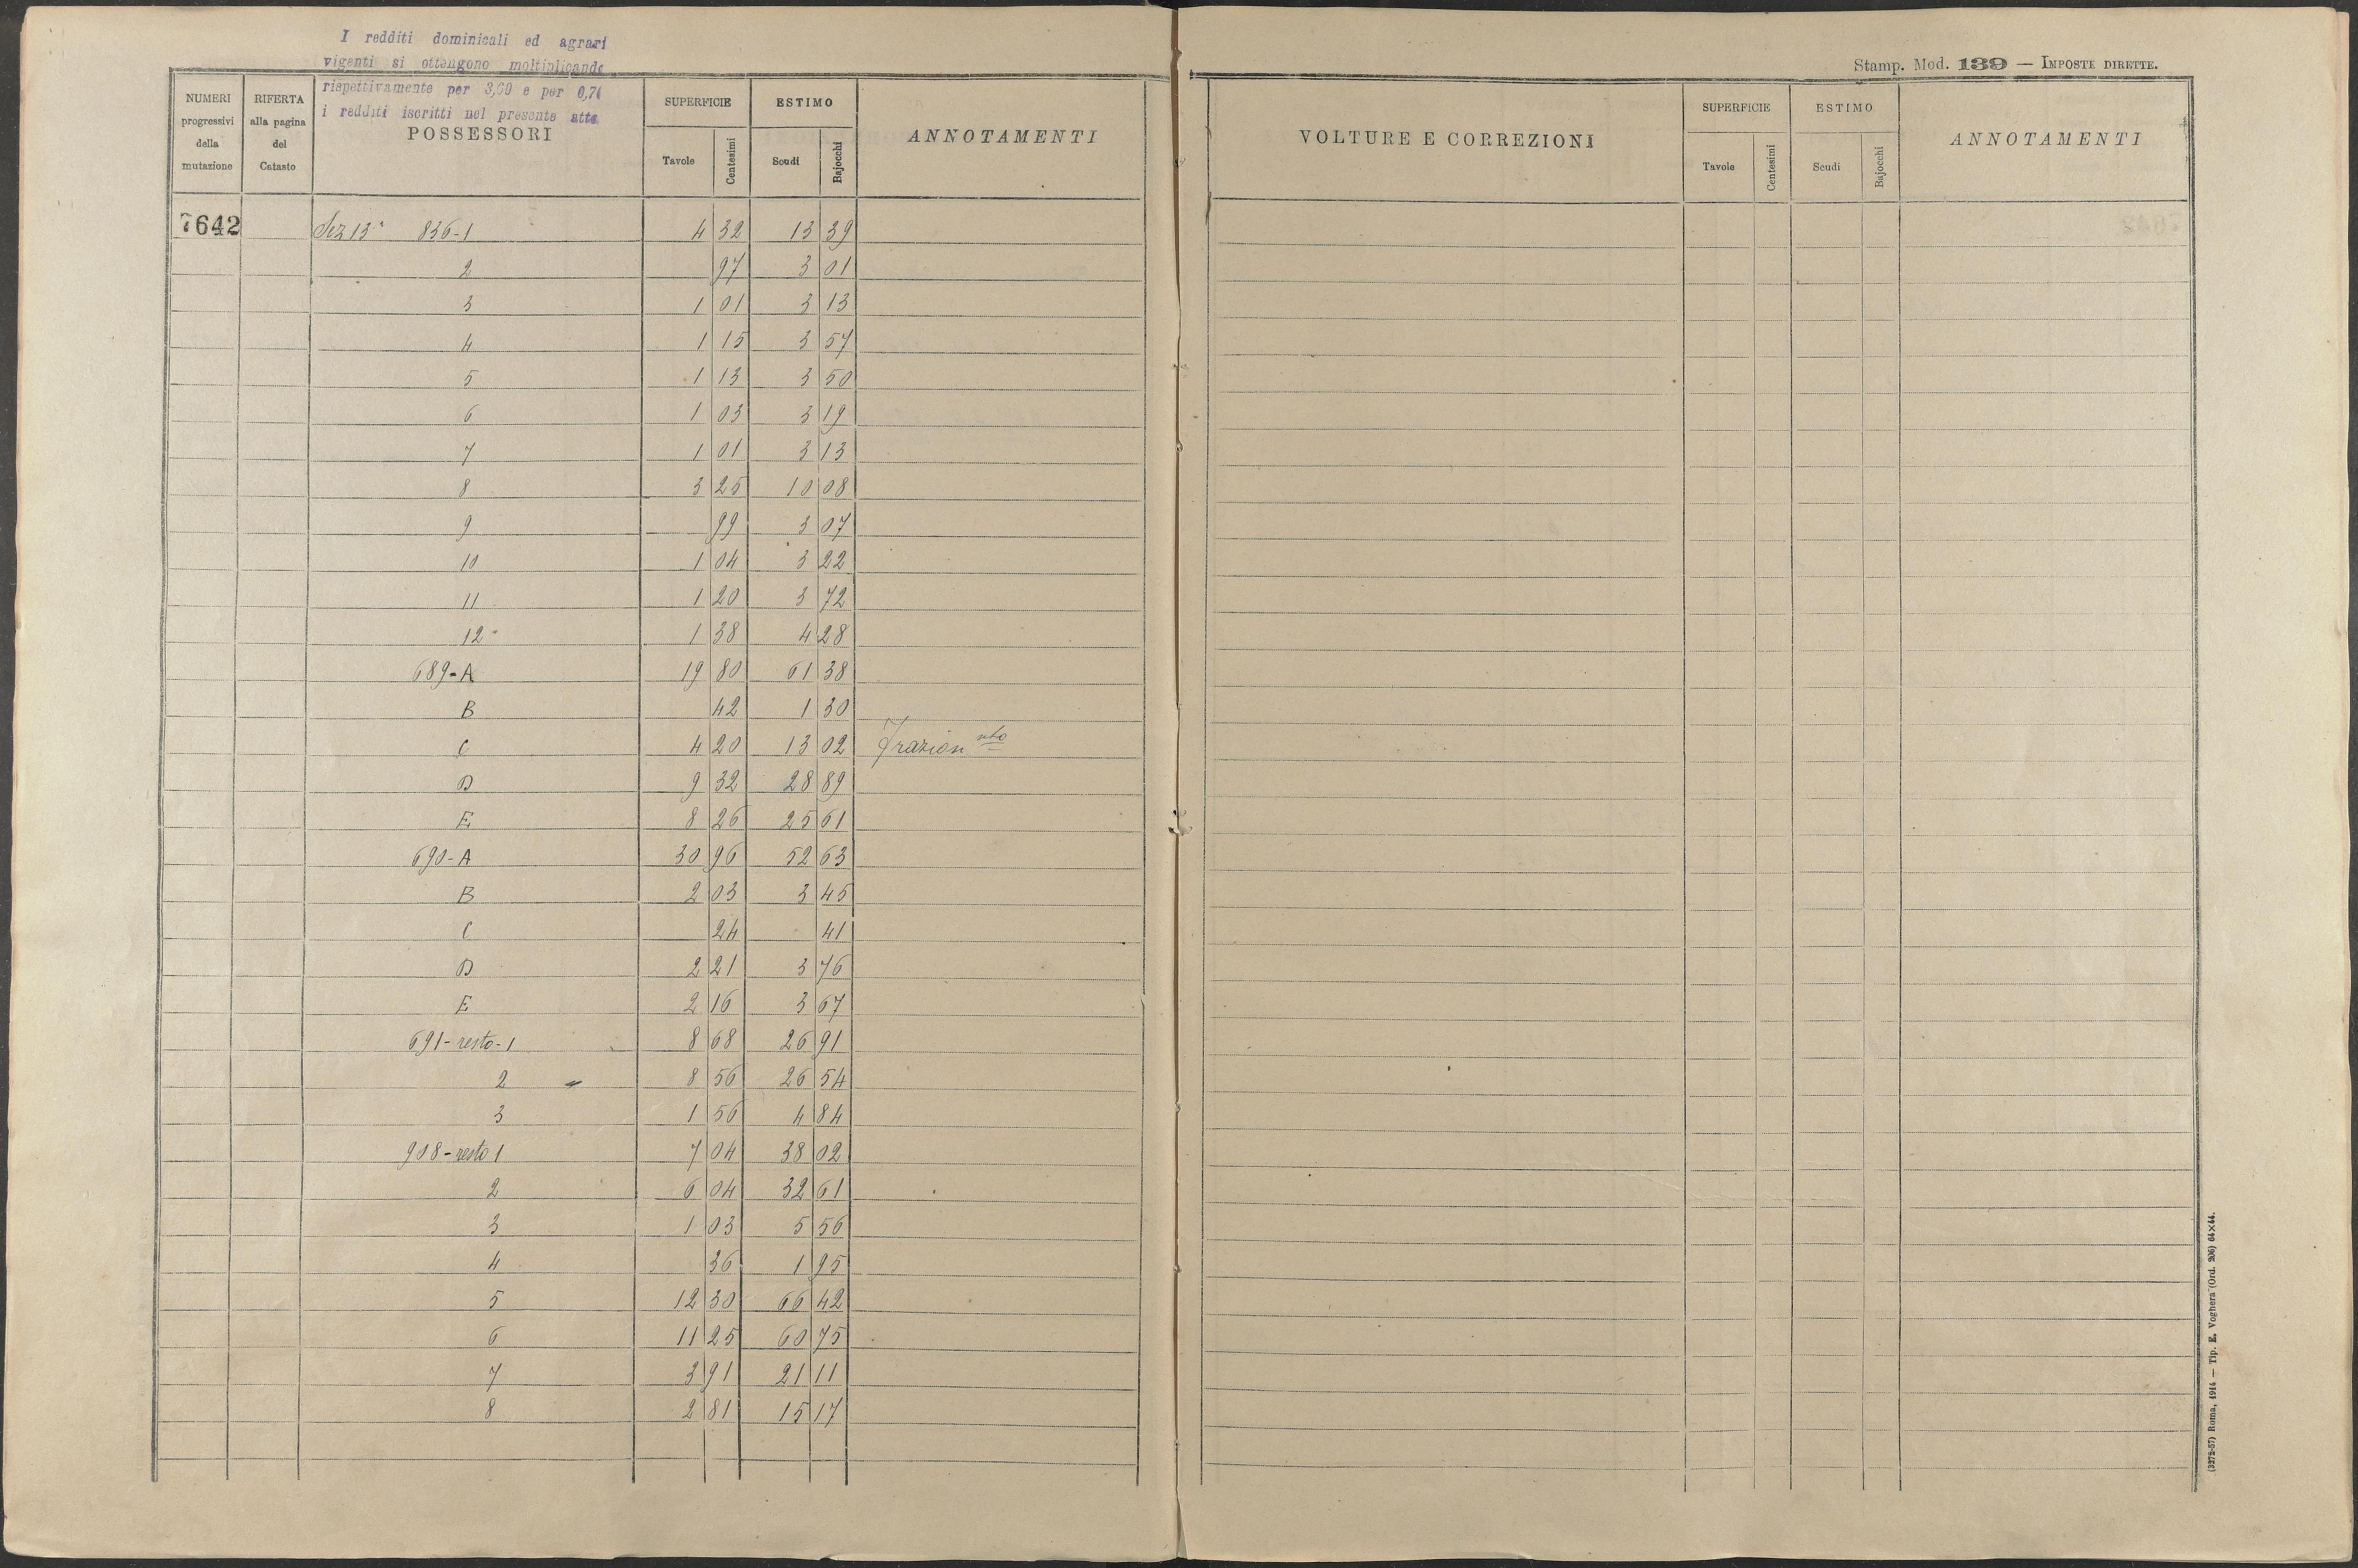 I redditi dominicali ed agrari
vigenti si ottengono moltiplicando
rispettivamente per 3,60 e per
i redditi iscritti nel presente atto
NUMERI progressivi della mutazione RIFERTA alla pagina del Catasto POSSESSORI SUPERFICIE Tavole Centesimi ESTIMO Scudi Bajocchi ANNOTAMENTI
7642 Sez 13ª 836-1 4 32 13 39
2 97 3 01
3 1 01 3 13
4 1 15 3 57
5 1 13 3 50
6 1 03 3 19
7 1 01 3 13
8 3 25 10 08
9 99 3 07
10 1 04 3 22
11 1 20 3 72
12 1 38 4 28
689-A 19 80 61 38
B 42 1 30
C 4 20 13 02 Frazion nto
D 9 32 28 89
E 8 26 25 61
690-A 30 96 52 63
B 2 03 3 45
C 24 41
D 2 21 3 76
E 2 16 3 67
691-resto-1 8 68 26 91
2 8 56 26 54
3 1 56 4 84
908-resto 1 7 04 38 02
2 6 04 32 61
3 1 03 5 56
4 36 1 95
5 12 30 66 42
6 11 25 60 75
7 3 91 21 11
8 2 81 15 17
Stamp. Mod. 139 — IMPOSTE DIRETTE.
VOLTURE E CORREZIONI SUPERFICIE Tavole Centesimi ESTIMO Scudi Bajocchi ANNOTAMENTI
(3272-57) Roma, 1914 — Tip. E. Voghera (Ord. 206) 64×44.